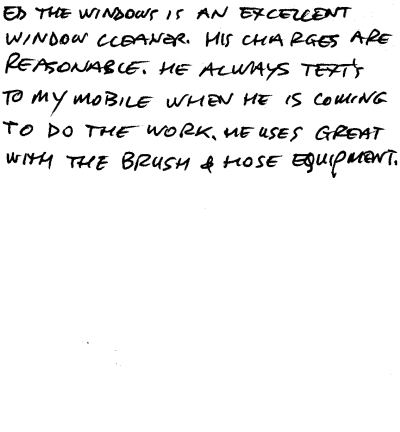 ED THE WINDOWS IS AN EXCELLENT
WINDOW CLEANER. HIS CHARGES ARE
REASONABLE. HE ALWAYS TEXT'S
TO MY MOBILE WHEN HE IS COMING
TO DO THE WORK. HE USES GREAT
WITH THE BRUSH & HOSE EQUIPMENT.